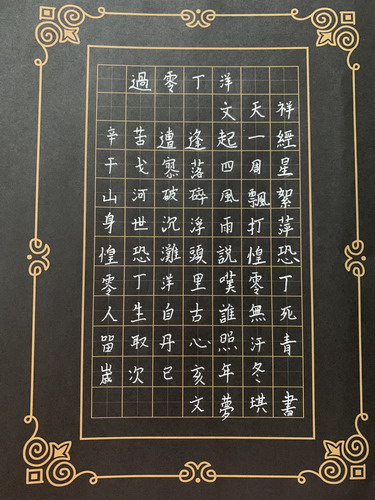 過零丁洋
文天祥
辛苦遭逢起一經
干戈寥落四周星
山河破碎風飄絮
身世沉浮雨打萍
惶恐灘頭說惶恐
零丁洋里嘆零丁
人生自古誰無死
留取丹心照汗青
嵗次已亥年冬
文夢琪書